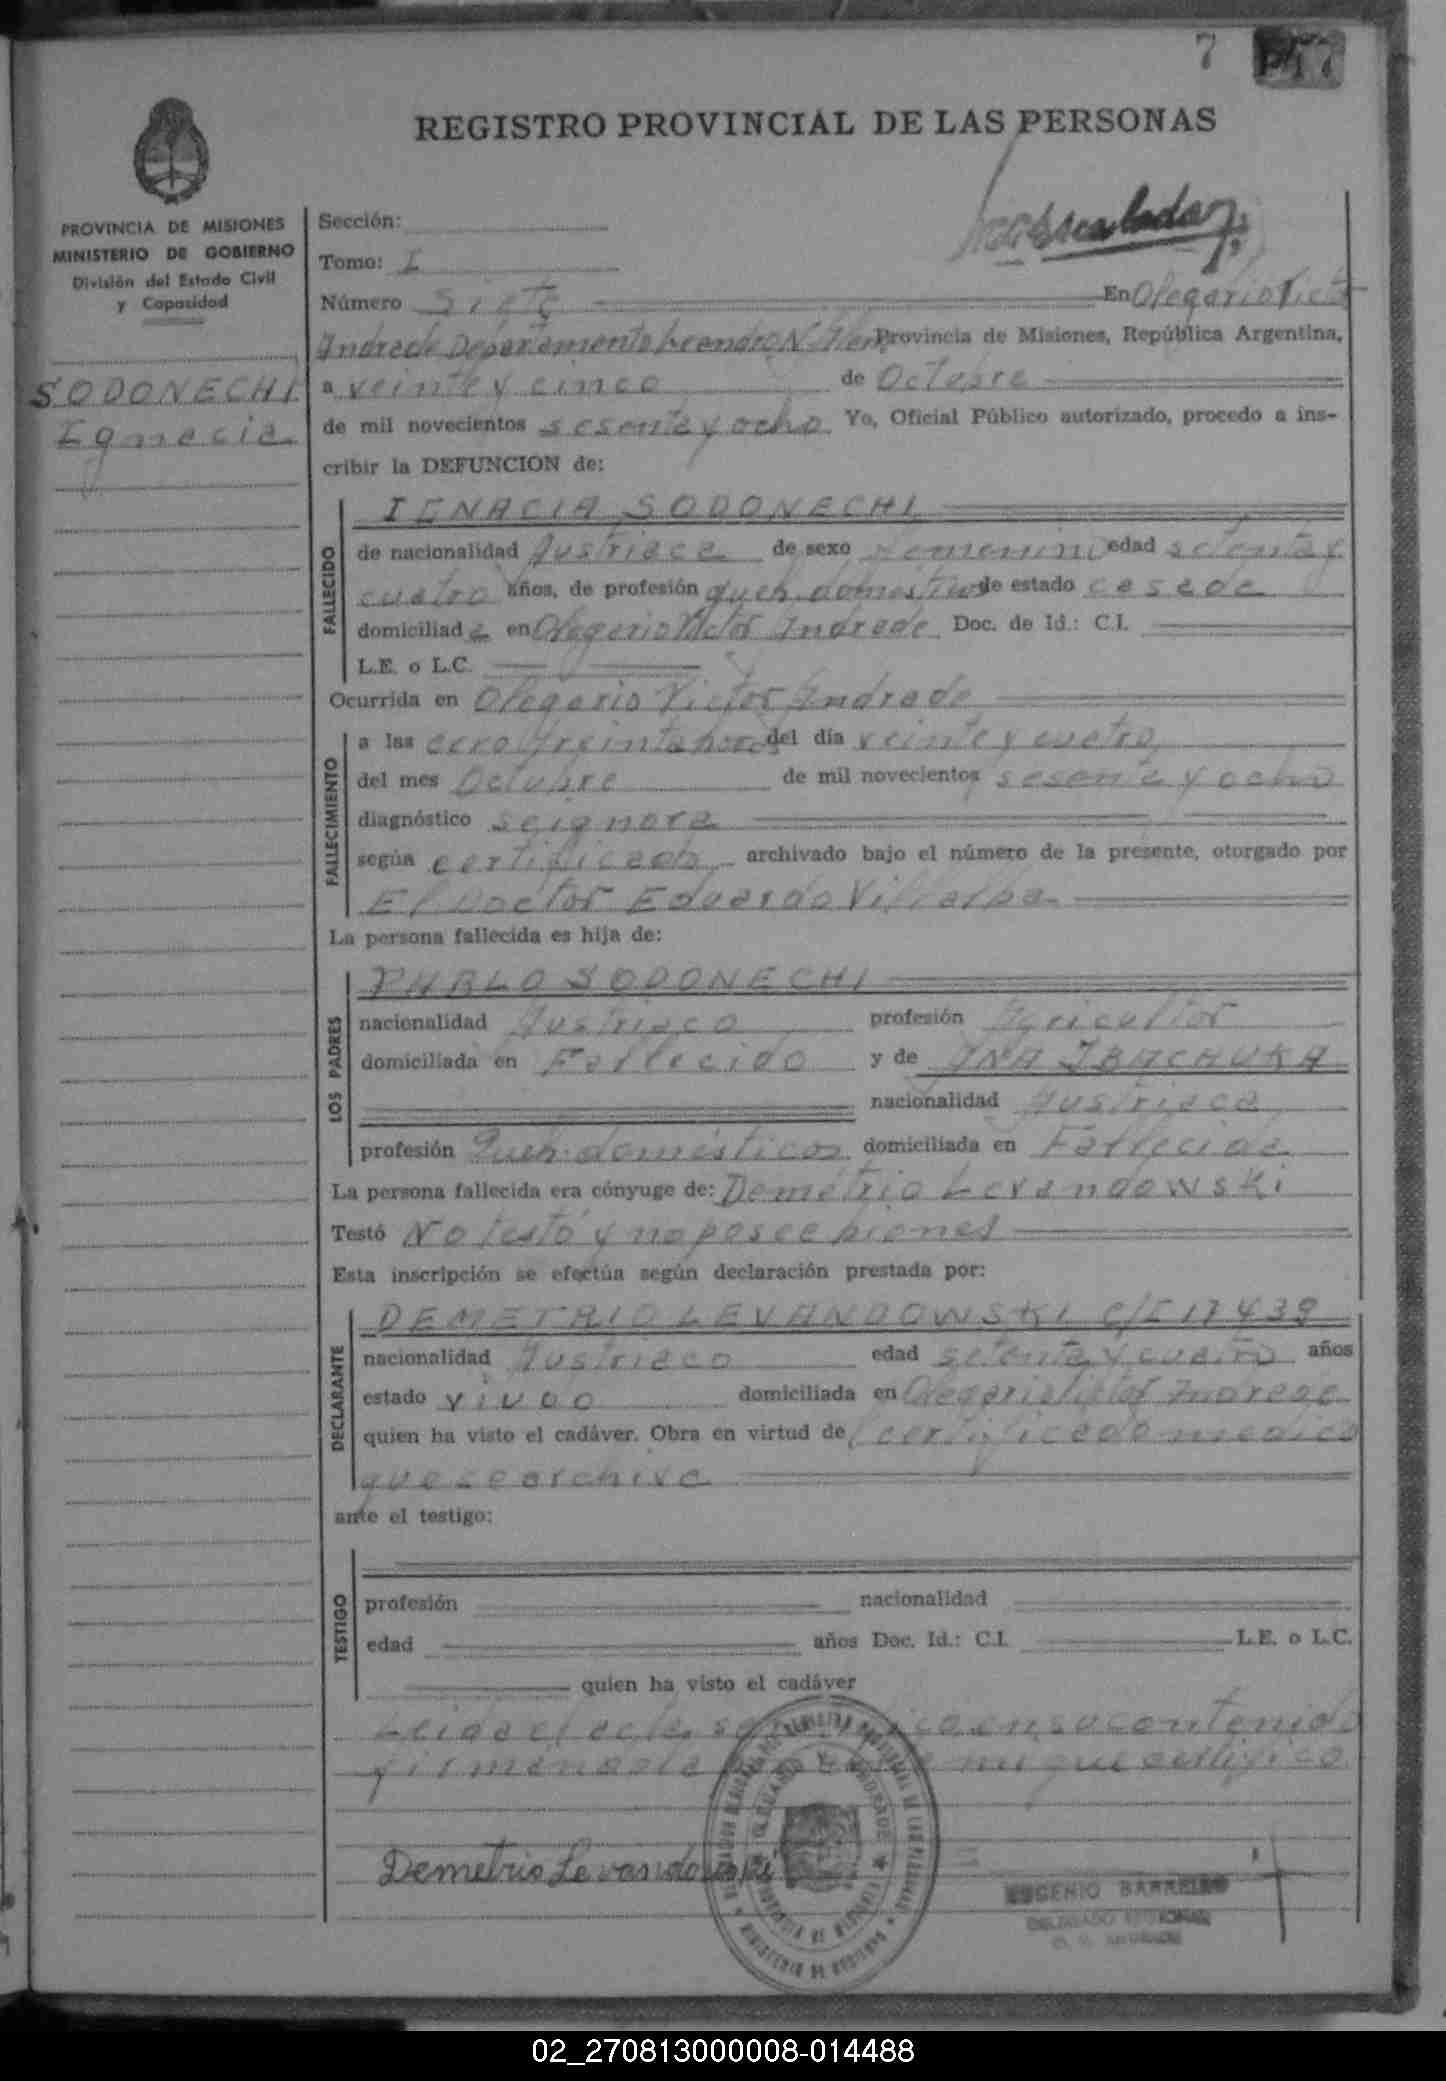 7
REGISTRO PROVINCIAL DE LAS PERSONAS
PROVINCIA DE MISIONES
MINISTERIO DE GOBIERNO
División del Estado Civil
y Capacidad
SODONECHI
Ignacia
Sección:
Tomo: I
Número Siete En Olegario Victor
Andrade Departamento Leandro N. Alem Provincia de Misiones, República Argentina,
a veinte y cinco de Octubre
de mil novecientos sesenta y ocho Yo, Oficial Público autorizado, procedo a ins-
cribir la DEFUNCION de:
FALLECIDO
IGNACIA SODONECHI
de nacionalidad Austriaca de sexo femenino edad setenta y
cuatro años, de profesión queh. domésticos de estado casada
domiciliada en Olegario Victor Andrade Doc. de Id.: C.I.
L.E. o L.C.
Ocurrida en Olegario Victor Andrade
FALLECIMIENTO
a las cero treinta horas del día veinte y cuatro
del mes Octubre de mil novecientos sesenta y ocho
diagnóstico se ignora
según certificado archivado bajo el número de la presente, otorgado por
El Doctor Eduardo Villalba
La persona fallecida es hija de:
LOS PADRES
PABLO SODONECHI
nacionalidad Austriaco profesión Agricultor
domiciliada en Fallecido y de ANA IBACHUKA
nacionalidad Austriaca
profesión Queh. domésticos domiciliada en Fallecida
La persona fallecida era cónyuge de: Demétrio Levandowski
Testó No testó y no posee bienes
Esta inscripción se efectúa según declaración prestada por:
DECLARANTE
DEMETRIO LEVANDOWSKI C/I 17439
nacionalidad Austriaco edad setenta y cuatro años
estado viudo domiciliada en Olegario Victor Andrade
quien ha visto el cadáver. Obra en virtud del certificado medico
que se archiva
ante el testigo:
TESTIGO
profesión nacionalidad
edad años Doc. Id.: C.I. L.E. o L.C.
quien ha visto el cadáver
Leida el acta en su contenido
firmandola mi que certifico
Demetrio Levandowski
EUGENIO BARREIRO
02_270813000008-014488